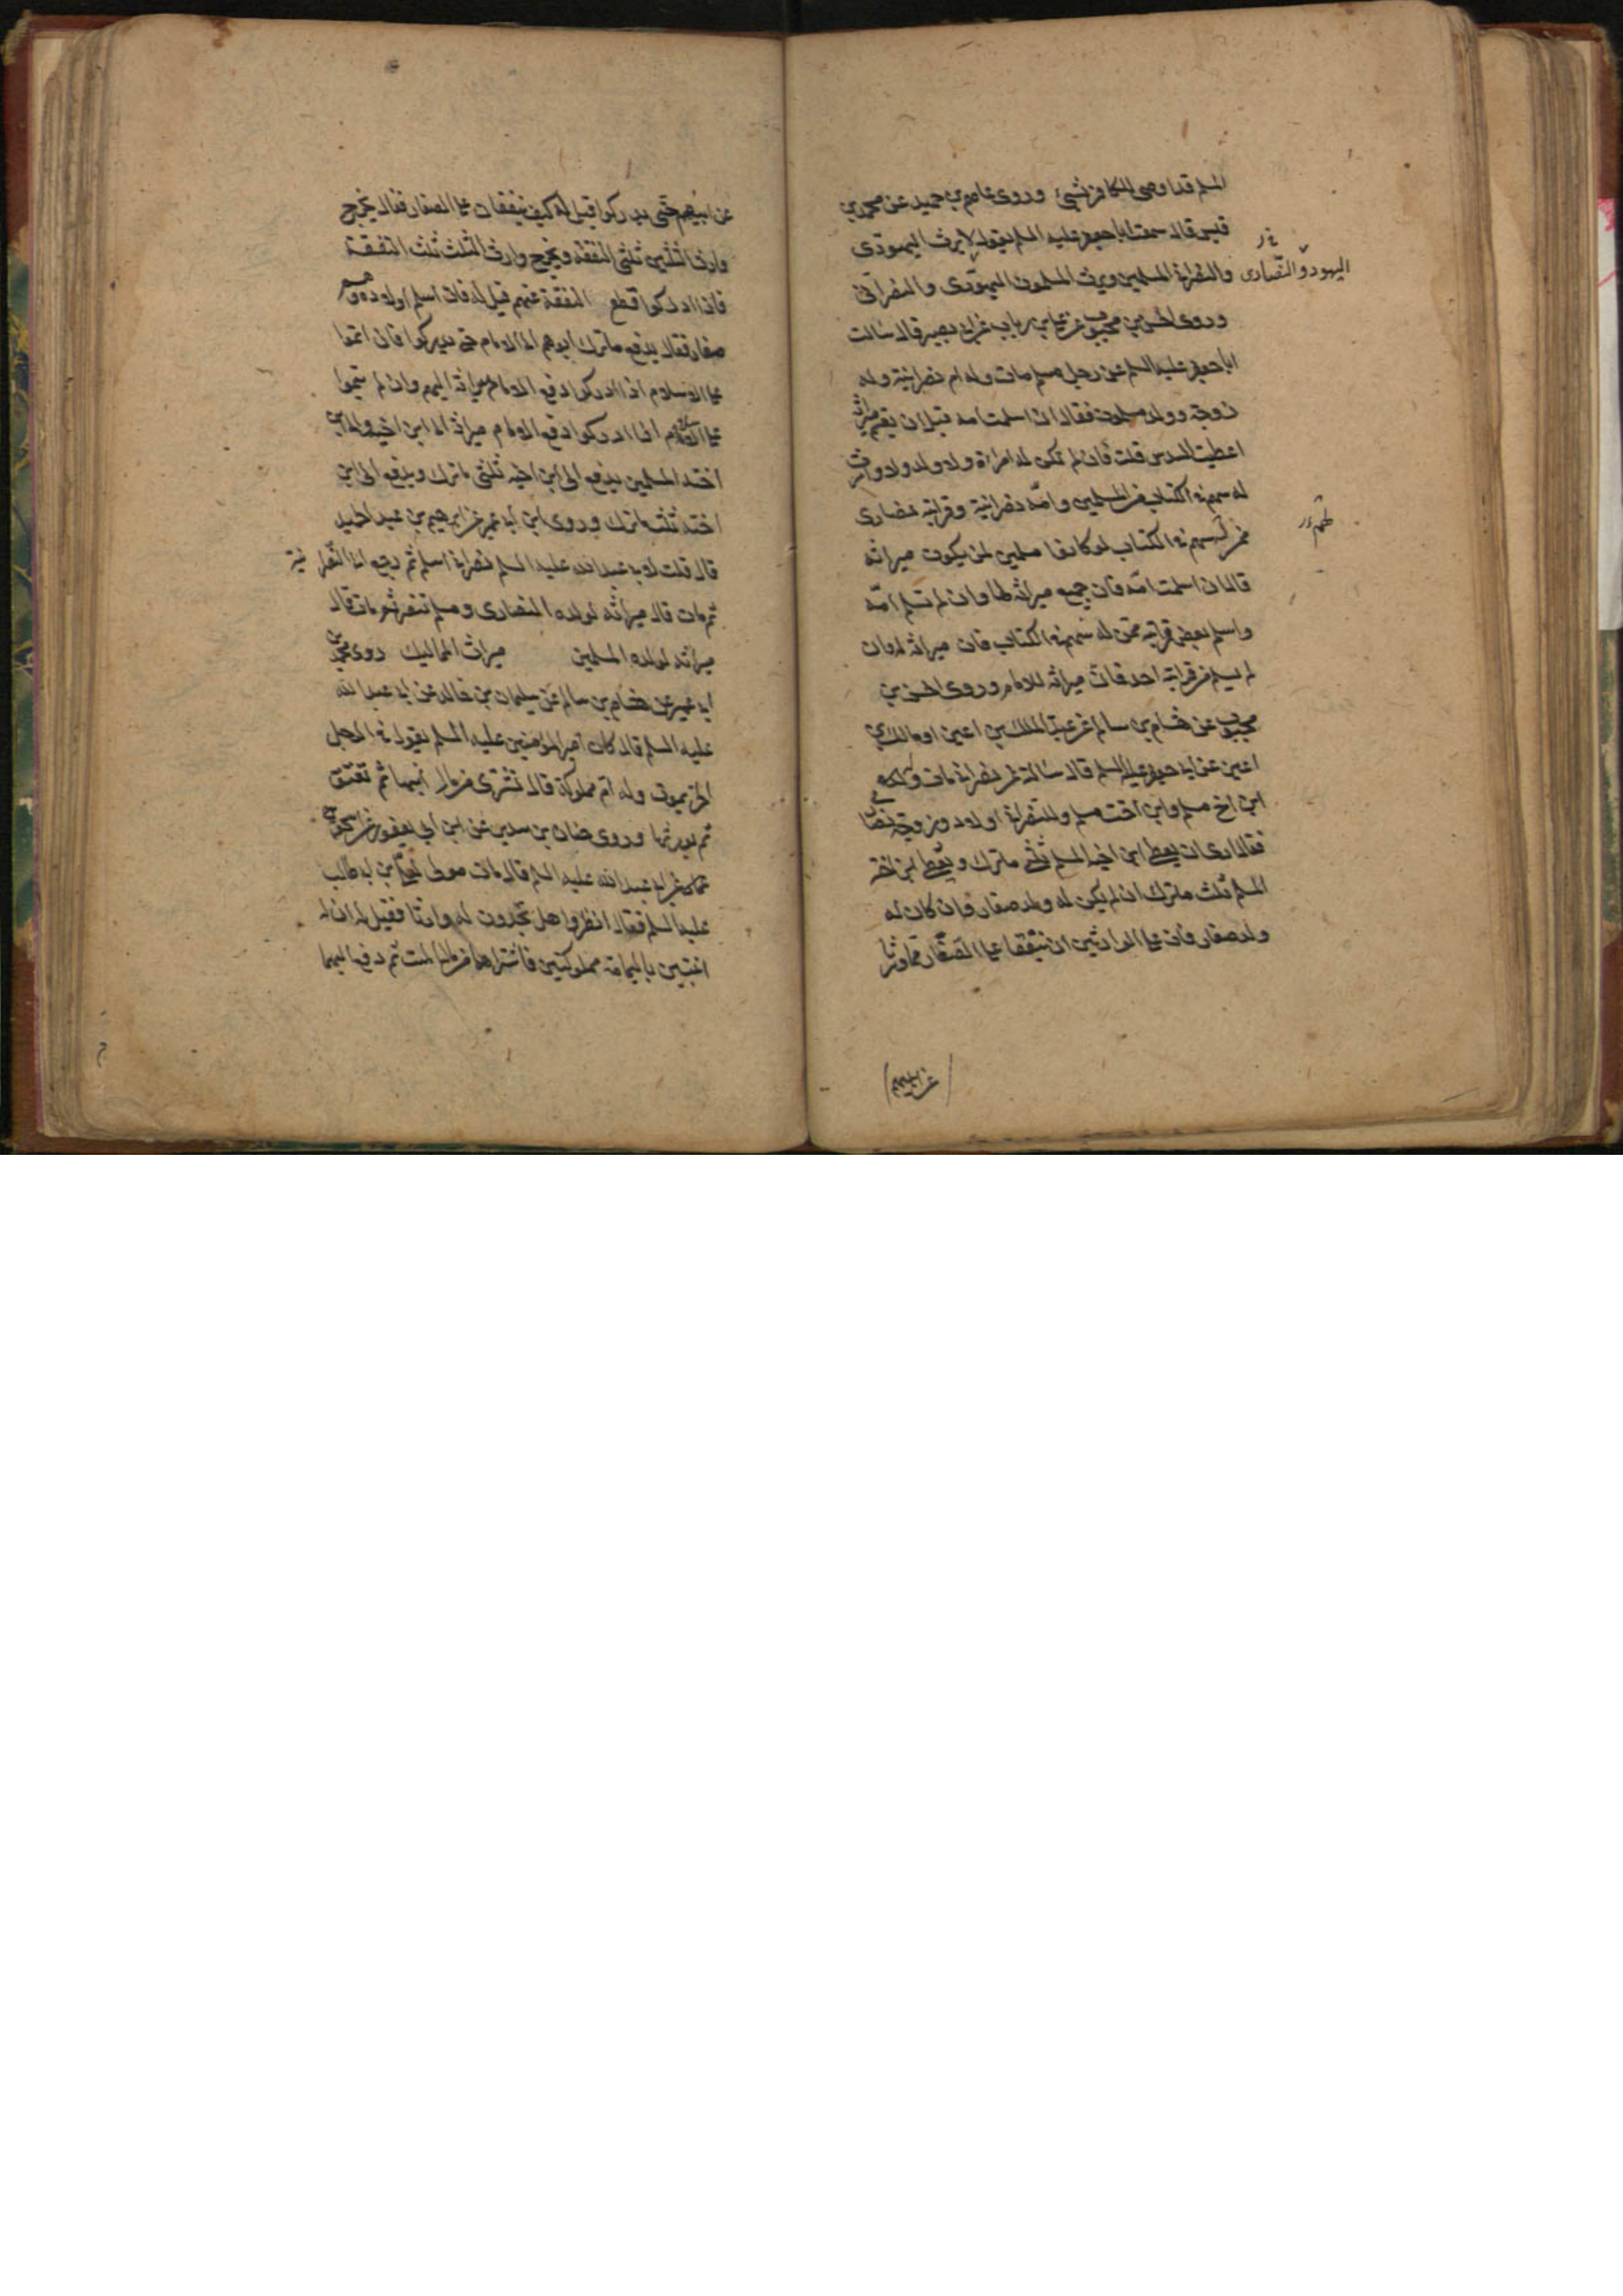 المسلم قد اوصى للكافر بشيئ وروى عاصم بن حميد عن محمد بن
قيس قال سمعت ابا جعفر عليه السلم يقول لا يرث اليهودى
والنصرانى المسلمين ويرث المسلمون اليهودى والنصرانى
اليهود والنصارى
وروى الحسن بن محبوب عن على بن رياب عن ابى بصير قال سالت
ابا جعفر عليه السلم عن رجل مسلم مات وله ام نصرانية وله
زوجة وولد مسلمون فقال ان اسلمت امه قبل ان يقسم ميراثه
اعطيت السدس قلت فان لم تكن له امراة ولا ولد ولا وارث
له سهم فى الكتاب من المسلمين وامه نصرانية وقرابته نصارى
ممن له سهم فى الكتاب لو كانوا مسلمين لمن يكون ميراثه
قال ان اسلمت امه فان جميع ميراثه لها وان لم تسلم امه
واسلم بعض قرابته ممن له سهم فى الكتاب فان ميراثه له وان
لم يسلم من قرابته احد فان ميراثه للامام وروى الحسن بن
محبوب عن هشام بن سالم عن عبد الملك بن اعين او مالك بن
اعين عن ابى جعفر عليه السلم قال سالته عن نصرانى مات وله
ابن اخ مسلم وابن اخت مسلم وللنصرانى اولاد وزوجة نصارى
فقال ارى ان يعطى ابن اخيه المسلم ثلثى ماترك ويعطى ابن اخته
المسلم ثلث ماترك ان لم يكن له ولد صغار فان كان له
ولد صغار فان على الوارثين ان ينفقا على الصغار مما ورثا
عن ابيهم
عن ابيهم حتى يدركوا قيل له كيف ينفقان على الصغار فقال يخرج
وارث الثلثين ثلثى النفقة ويخرج وارث الثلث ثلث النفقة
فاذا ادركوا قطع النفقة عنهم قيل له فان اسلم اولاده وهم
صغار فقال يدفع ماترك ابوهم الى الامام حتى يدركوا فان اتموا
على الاسلام اذا ادركوا دفع الامام ميراثه اليهم وان لم يتموا
على الاسلام اذا ادركوا دفع الامام ميراثه الى ابن اخيه والى ابن
اخته المسلمين يدفع الى ابن اخيه ثلثى ماترك ويدفع الى ابن
اخته ثلث ماترك وروى ابن ابى عمير عن ابرهيم بن عبد الحميد
قال قلت لابى عبد الله عليه السلم نصرانى اسلم ثم رجع الى النصرانية
ثم مات قال ميراثه لولده النصارى ومسلم تنصر ثم مات قال
ميراثه لولده المسلمين ميراث المماليك روى محمد بن
ابى عمير عن هشام بن سالم عن سليمان بن خالد عن ابى عبد الله
عليه السلم قال كان امير المؤمنين عليه السلم يقول فى الرجل
الحر يموت وله ام مملوكة قال تشترى من مال ابنها ثم تعتق
ثم يورثها وروى حنان بن سدير عن ابن ابى يعفور عن اسحق بن
عمار عن ابى عبد الله عليه السلم قال مات مولى لعلى بن ابى طالب
عليه السلم فقال انظروا هل تجدون له وارثا فقيل له ان له
ابنتين باليمامة مملوكتين فاشتراهما من مال الميت ثم دفع اليهما